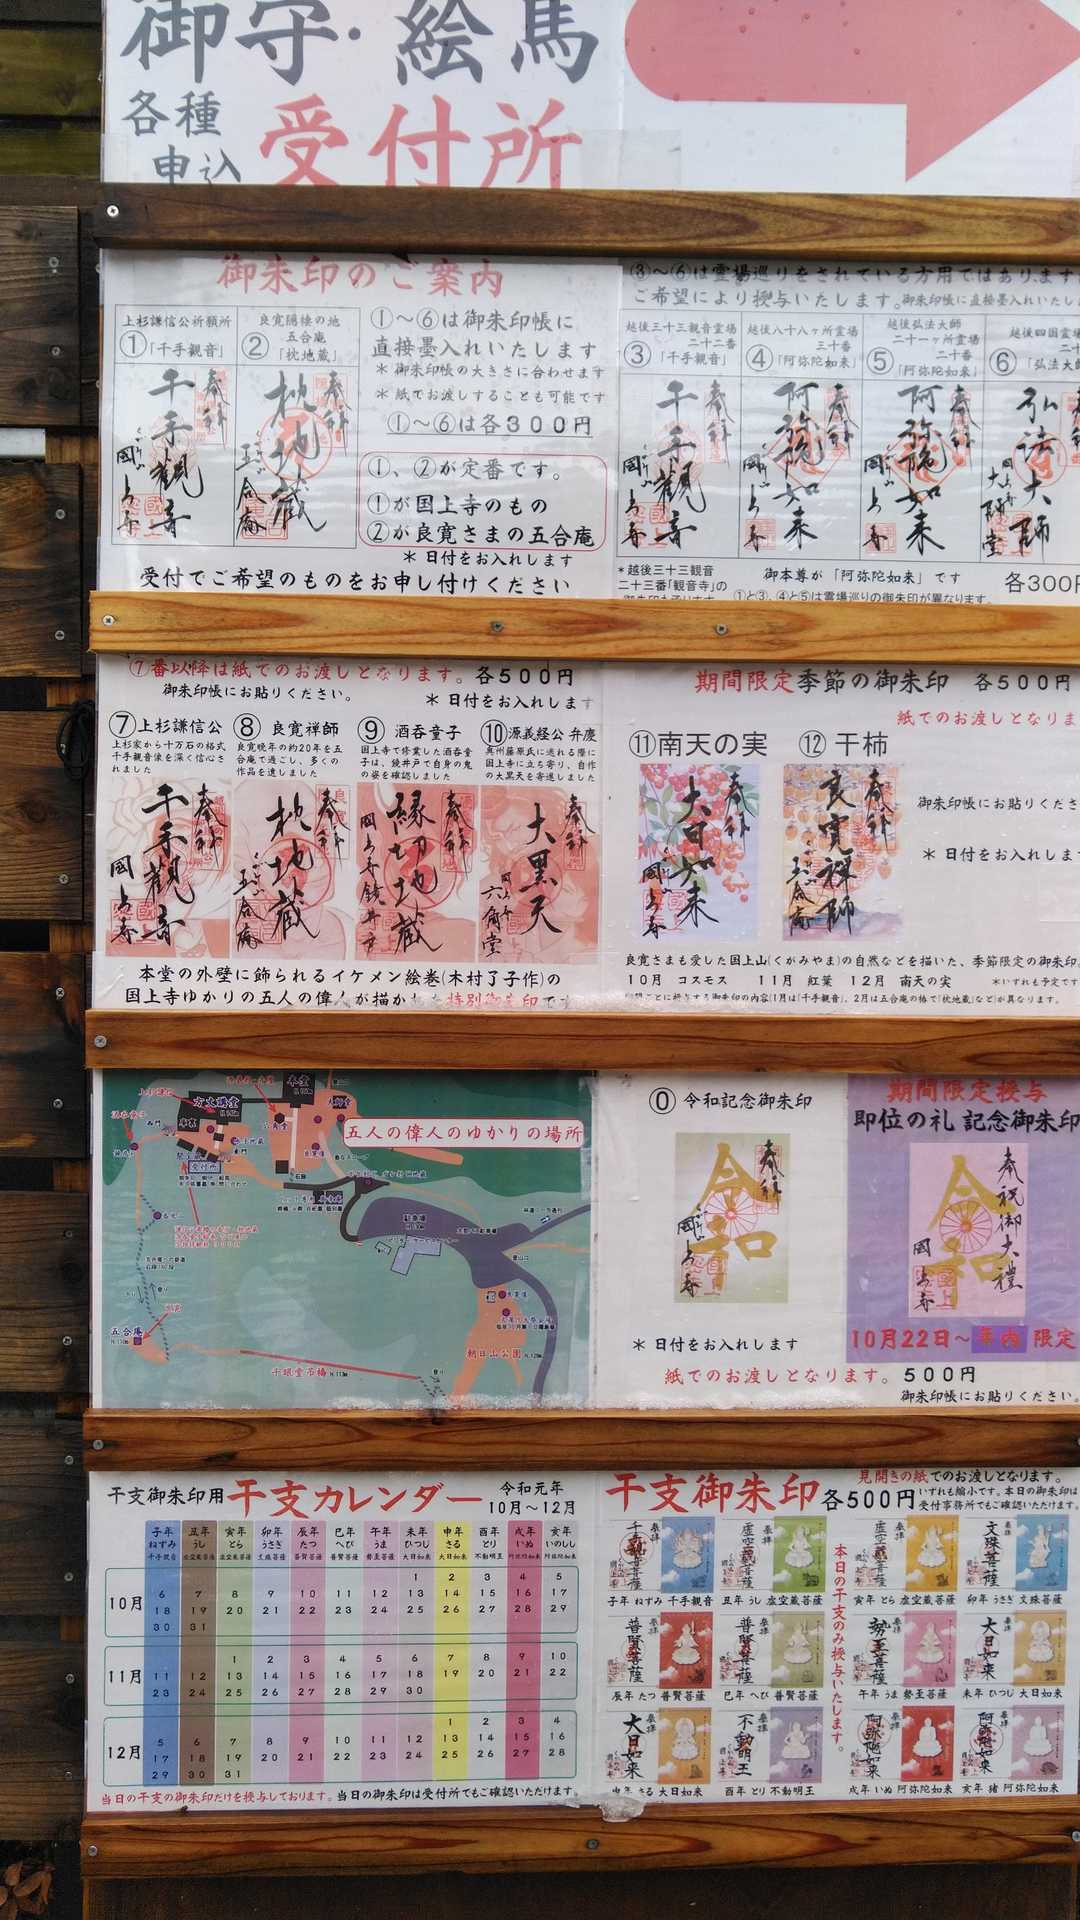 御守・絵馬
各種
申込
受付所
御朱印のご案内
上杉謙信公祈願所
①「千手観音」
良寛隠棲の地
五合庵
②「枕地蔵」
①〜⑥は御朱印帳に
直接墨入れいたします
＊御朱印帳の大きさに合わせます
＊紙でお渡しすることも可能です
①〜⑥は各３００円
①、②が定番です。
①が国上寺のもの
②が良寛さまの五合庵
＊日付をお入れします
受付でご希望のものをお申し付けください
奉拝
千手観音
国上寺
奉拝
枕地蔵
五合庵
③〜⑥は霊場巡りをされている方用ではあります
ご希望により授与いたします。御朱印帳に直接墨入れいたし
越後三十三観音霊場
二十二番
③「千手観音」
越後八十八ヶ所霊場
三十番
④「阿弥陀如来」
越後弘法大師
二十一ヶ所霊場
二十番
⑤「阿弥陀如来」
越後四国霊
⑥「弘法大師
奉拝
千手観音
国上寺
奉拝
阿弥陀如来
国上寺
奉拝
阿弥陀如来
国上寺
弘法大師
大師堂
＊越後三十三観音
二十三番「観音寺」の
御本尊が「阿弥陀如来」です
各300円
①と③、④と⑤は霊場巡りの御朱印が異なります。
⑦番以降は紙でのお渡しとなります。各５００円
御朱印帳にお貼りください。
＊日付をお入れします
⑦上杉謙信公
上杉家から十万石の格式
千手観音像を深く信心さ
れました
⑧良寛禅師
良寛晩年の約20年を五
合庵で過ごし、多くの
作品を遺しました
⑨酒呑童子
国上寺で修業した酒呑童
子は、鏡井戸で自身の鬼
の姿を確認しました
⑩源義経公 弁慶
奥州藤原氏に逃れる際に
国上寺に立ち寄り、自作
の大黒天を寄進しました
奉拝
千手観音
国上寺
奉拝
枕地蔵
五合庵
奉拝
縁切地蔵
国上寺鏡井戸
奉拝
大黒天
六角堂
本堂の外壁に飾られるイケメン絵巻(木村了子作)の
国上寺ゆかりの五人の偉人が描かれた特別御朱印です
期間限定季節の御朱印 各５００円
紙でのお渡しとなりま
⑪南天の実
⑫干柿
奉拝
大日如来
国上寺
奉拝
良寛禅師
五合庵
御朱印帳にお貼りくださ
＊日付をお入れします
良寛さまも愛した国上山(くがみやま)の自然などを描いた、季節限定の御朱印
10月 コスモス 11月 紅葉 12月 南天の実
＊いずれも予定です
五人の偉人のゆかりの場所
本堂
方丈講堂
六角堂
駐車場
五合庵
千眼堂吊橋
朝日山公園
⓪ 令和記念御朱印
奉拝
令和
国上寺
＊日付をお入れします
紙でのお渡しとなります。５００円
御朱印帳にお貼りください。
期間限定授与
即位の礼 記念御朱印
奉祝御大禮
令和
国上寺
10月22日〜年内限定
干支御朱印用干支カレンダー
令和元年
10月〜12月
子年 丑年 寅年 卯年 辰年 巳年 午年 未年 申年 酉年 戌年 亥年
ねずみ うし とら うさぎ たつ へび うま ひつじ さる とり いぬ いのしし
千手観音 虚空蔵菩薩 虚空蔵菩薩 文殊菩薩 普賢菩薩 普賢菩薩 勢至菩薩 大日如来 大日如来 不動明王 阿弥陀如来 阿弥陀如来
10月
1 2 3 4 5
6 7 8 9 10 11 12 13 14 15 16 17
18 19 20 21 22 23 24 25 26 27 28 29
30 31
11月
1 2 3 4 5 6 7 8 9 10
11 12 13 14 15 16 17 18 19 20 21 22
23 24 25 26 27 28 29 30
12月
1 2 3 4
5 6 7 8 9 10 11 12 13 14 15 16
17 18 19 20 21 22 23 24 25 26 27 28
29 30 31
当日の干支の御朱印だけを授与しております。当日の御朱印は受付所でもご確認いただけます。
干支御朱印各500円
見開きの紙でのお渡しとなります。
いずれも縮小です。本日の御朱印は
受付事務所でもご確認いただけます。
本日の干支のみ授与いたします。
子年 ねずみ 千手観音
丑年 うし 虚空蔵菩薩
寅年 とら 虚空蔵菩薩
卯年 うさぎ 文殊菩薩
辰年 たつ 普賢菩薩
巳年 へび 普賢菩薩
午年 うま 勢至菩薩
未年 ひつじ 大日如来
申年 さる 大日如来
酉年 とり 不動明王
戌年 いぬ 阿弥陀如来
亥年 猪 阿弥陀如来